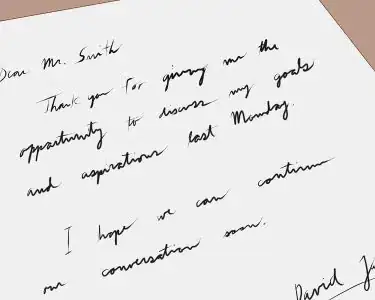 Dear Mr. Smith
Thank you for giving me the
opportunity to discuss my goals
and aspirations last Monday.
I hope we can continue
our conversation soon.
David